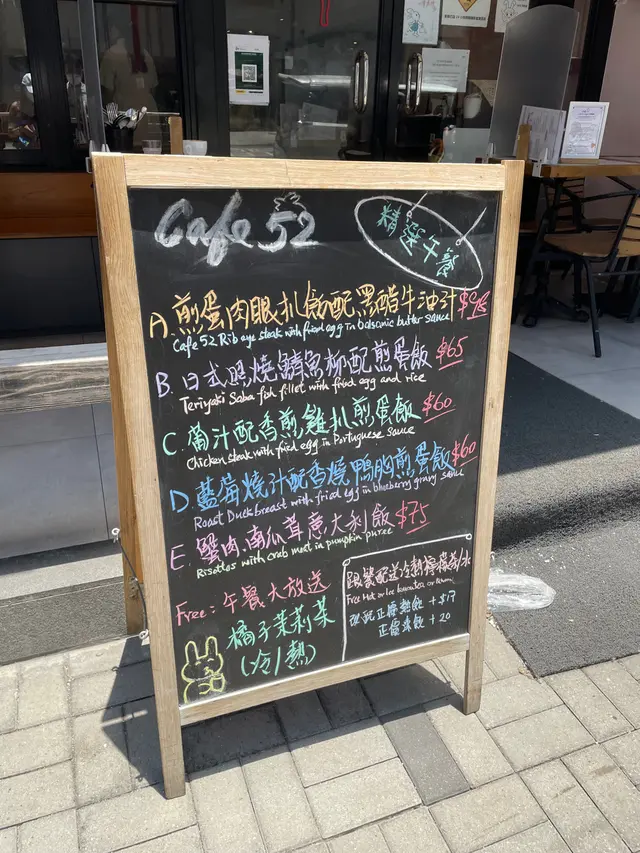 Cafe 52
精選午餐
A. 煎蛋肉眼扒飯配黑醋牛油汁 $98
Cafe 52 Rib eye steak with fried egg in balsamic butter sauce
B. 日式照燒鯖魚柳配煎蛋飯 $65
Teriyaki Saba fish fillet with fried egg and rice
C. 葡汁配香煎雞扒煎蛋飯 $60
Chicken steak with fried egg in Portuguese sauce
D. 藍莓燒汁配香燒鴨胸煎蛋飯 $60
Roast Duck breast with fried egg in blueberry gravy sauce
E. 蟹肉南瓜茸意大利飯 $75
Risottos with crab meat in pumpkin puree
Free: 午餐大放送
橘子茉莉茶
(冷/熱)
跟餐配送冷熱檸檬茶/水
Free Hot or Ice lemon tea or
正價熱飲 +$17
正價凍飲 +20